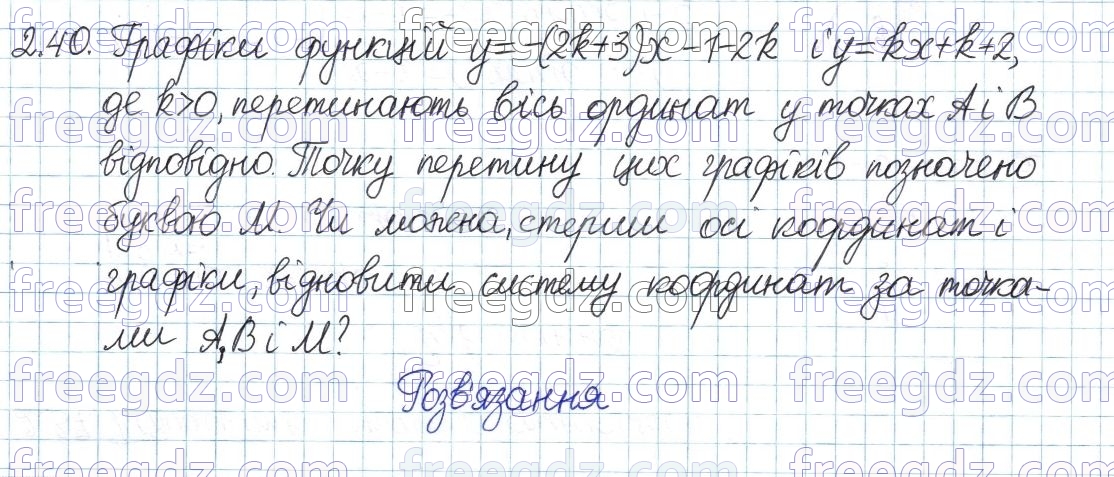 2.40. Графіки функцій y=-(2k+3)x-1-2k і y=kx+k+2,
де k>0, перетинають вісь ординат у точках A і B
відповідно. Точку перетину цих графіків позначено
буквою M. Чи можна, стерши осі координат і
графіки, відновити систему координат за точка-
ми A, B і M?
Розв'язання
freegdz.com